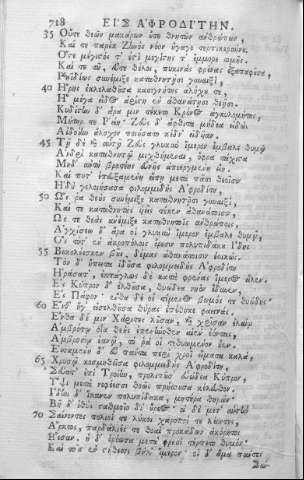 718 ΕΙΣ ΑΦΡΟΔΙΤΗΝ.
35 Οὔτε θεῶν μακάρων ὔτε θνητῶν ἀνθρώπων,
Καί τε παρὲκ Ζηνὸς νόον ἤγαγε τερπικεραύνε,
Ὅστε μέγιστός τ' ἐστὶ μεγίστης τ' ἔμμορε τιμῆς.
Καί τε τῦ, εὖτε ἐθέλοι, πυκινὰς φρένας ἐξαπαφῦσα,
Ῥηϊδίως συνέμιξε καταθνητῇσι γυναιξὶ,
40 Ἥρης ἐκλελαθῦσα κασιγνήτης ἀλόχε τε,
Ἣ μέγα εἶδος ἀρίστη ἐν ἀθανάτῃσι θεῇσι.
Κυδίστην δ' ἄρα μιν τέκετο Κρόνος ἀγκυλομήτης,
Μήτηρ τε Ῥείη· Ζεὺς δ' ἄφθιτα μήδεα εἰδὼς
Αἰδοίην ἄλοχον ποιήσατο κέδν' εἰδυῖαν.
45 Τῇ δὲ καὶ αὐτῇ Ζεὺς γλυκὺν ἵμερον ἔμβαλε θυμῷ
Ἀνδρὶ καταθνητῷ μιχθήμεναι, ὄφρα τάχιστα
Μηδ' αὐτὴ βροτέης εὐνῆς ἀποεργμένη εἴη.
Καί ποτ' ἐπευξαμένη εἴπῃ μετὰ πᾶσι θεοῖσιν
Ἡδὺ γελοιήσασα φιλομμειδὴς Ἀφροδίτη,
50 Ὥς ῥα θεὺς συνέμιξε καταθνητῇσι γυναιξὶ,
Καί τε καταθνητὺς υἱεῖς τέκον ἀθανάτοισιν,
Ὥς τε θεὰς ἀνέμιξε καταθνητοῖς ἀνθρώποις.
Ἀγχίσεω δ' ἄρα οἱ γλυκὺν ἵμερον ἔμβαλε θυμῷ,
Ὃς τότ' ἐν ἀκροπόλοις ὄρεσιν πολυπιδάκε Ἴδης
55 Βυκολέεσκεν βῦς, δέμας ἀθανάτοισιν ἐοικώς.
Τὸν δ' ἤπειτα ἰδῦσα φιλομμειδὴς Ἀφροδίτη
Ἠράσατ', ἐκπάγλως δὲ κατὰ φρένας ἵμερος εἷλεν.
Ἐς Κύπρον δ' ἐλθῦσα, θυώδεα νηὸν ἔδυνεν
Ἐς Πάφον· ἔνθα δέ οἱ τέμενος βωμός τε θυώδης·
60 Ἔνθ' ἥγ' εἰσελθῦσα θύρας ἐπέθηκε φαεινάς.
Ἔνθα δέ μιν Χάριτες λῦσαν, καὶ χρῖσαν ἐλαίῳ
Ἀμβρότῳ οἷα θεὺς ἐπενήνοθεν αἰὲν ἐόντας,
Ἀμβροσίῳ ἑανῷ, τό ῥά οἱ τεθυωμένον ἦεν.
Ἑσσαμένη δ' εὖ πάντα περὶ χροῒ εἵματα καλὰ,
65 Χρυσῷ κοσμηθεῖσα φιλομμειδὴς Ἀφροδίτη,
Σεύατ' ἐπὶ Τροίην, προλιπῦσ' εὐώδεα Κύπρον,
Ὕψι μετὰ νεφέεσσι θοῶς πρήσσυσα κέλευθον.
Ἴδην δ' ἵκανεν πολυπίδακα, μητέρα θηρῶν·
Βῆ δ' ἰθὺς σταθμοῖο δι' ὔρεος· οἱ δὲ μετ' αὐτὴν
70 Σαίνοντες πολιοί τε λύκοι χαροποί τε λέοντες,
Ἄρκτοι, παρδάλιές τε θοαὶ προκάδων ἀκόρητοι
Ἤϊσαν. ἡ δ' ὁρόωσα μετὰ φρεσὶ τέρπετο θυμὸν·
Καὶ τοῖς ἐν στήθεσσι βάλ' ἵμερον· οἱ δ' ἅμα πάντες